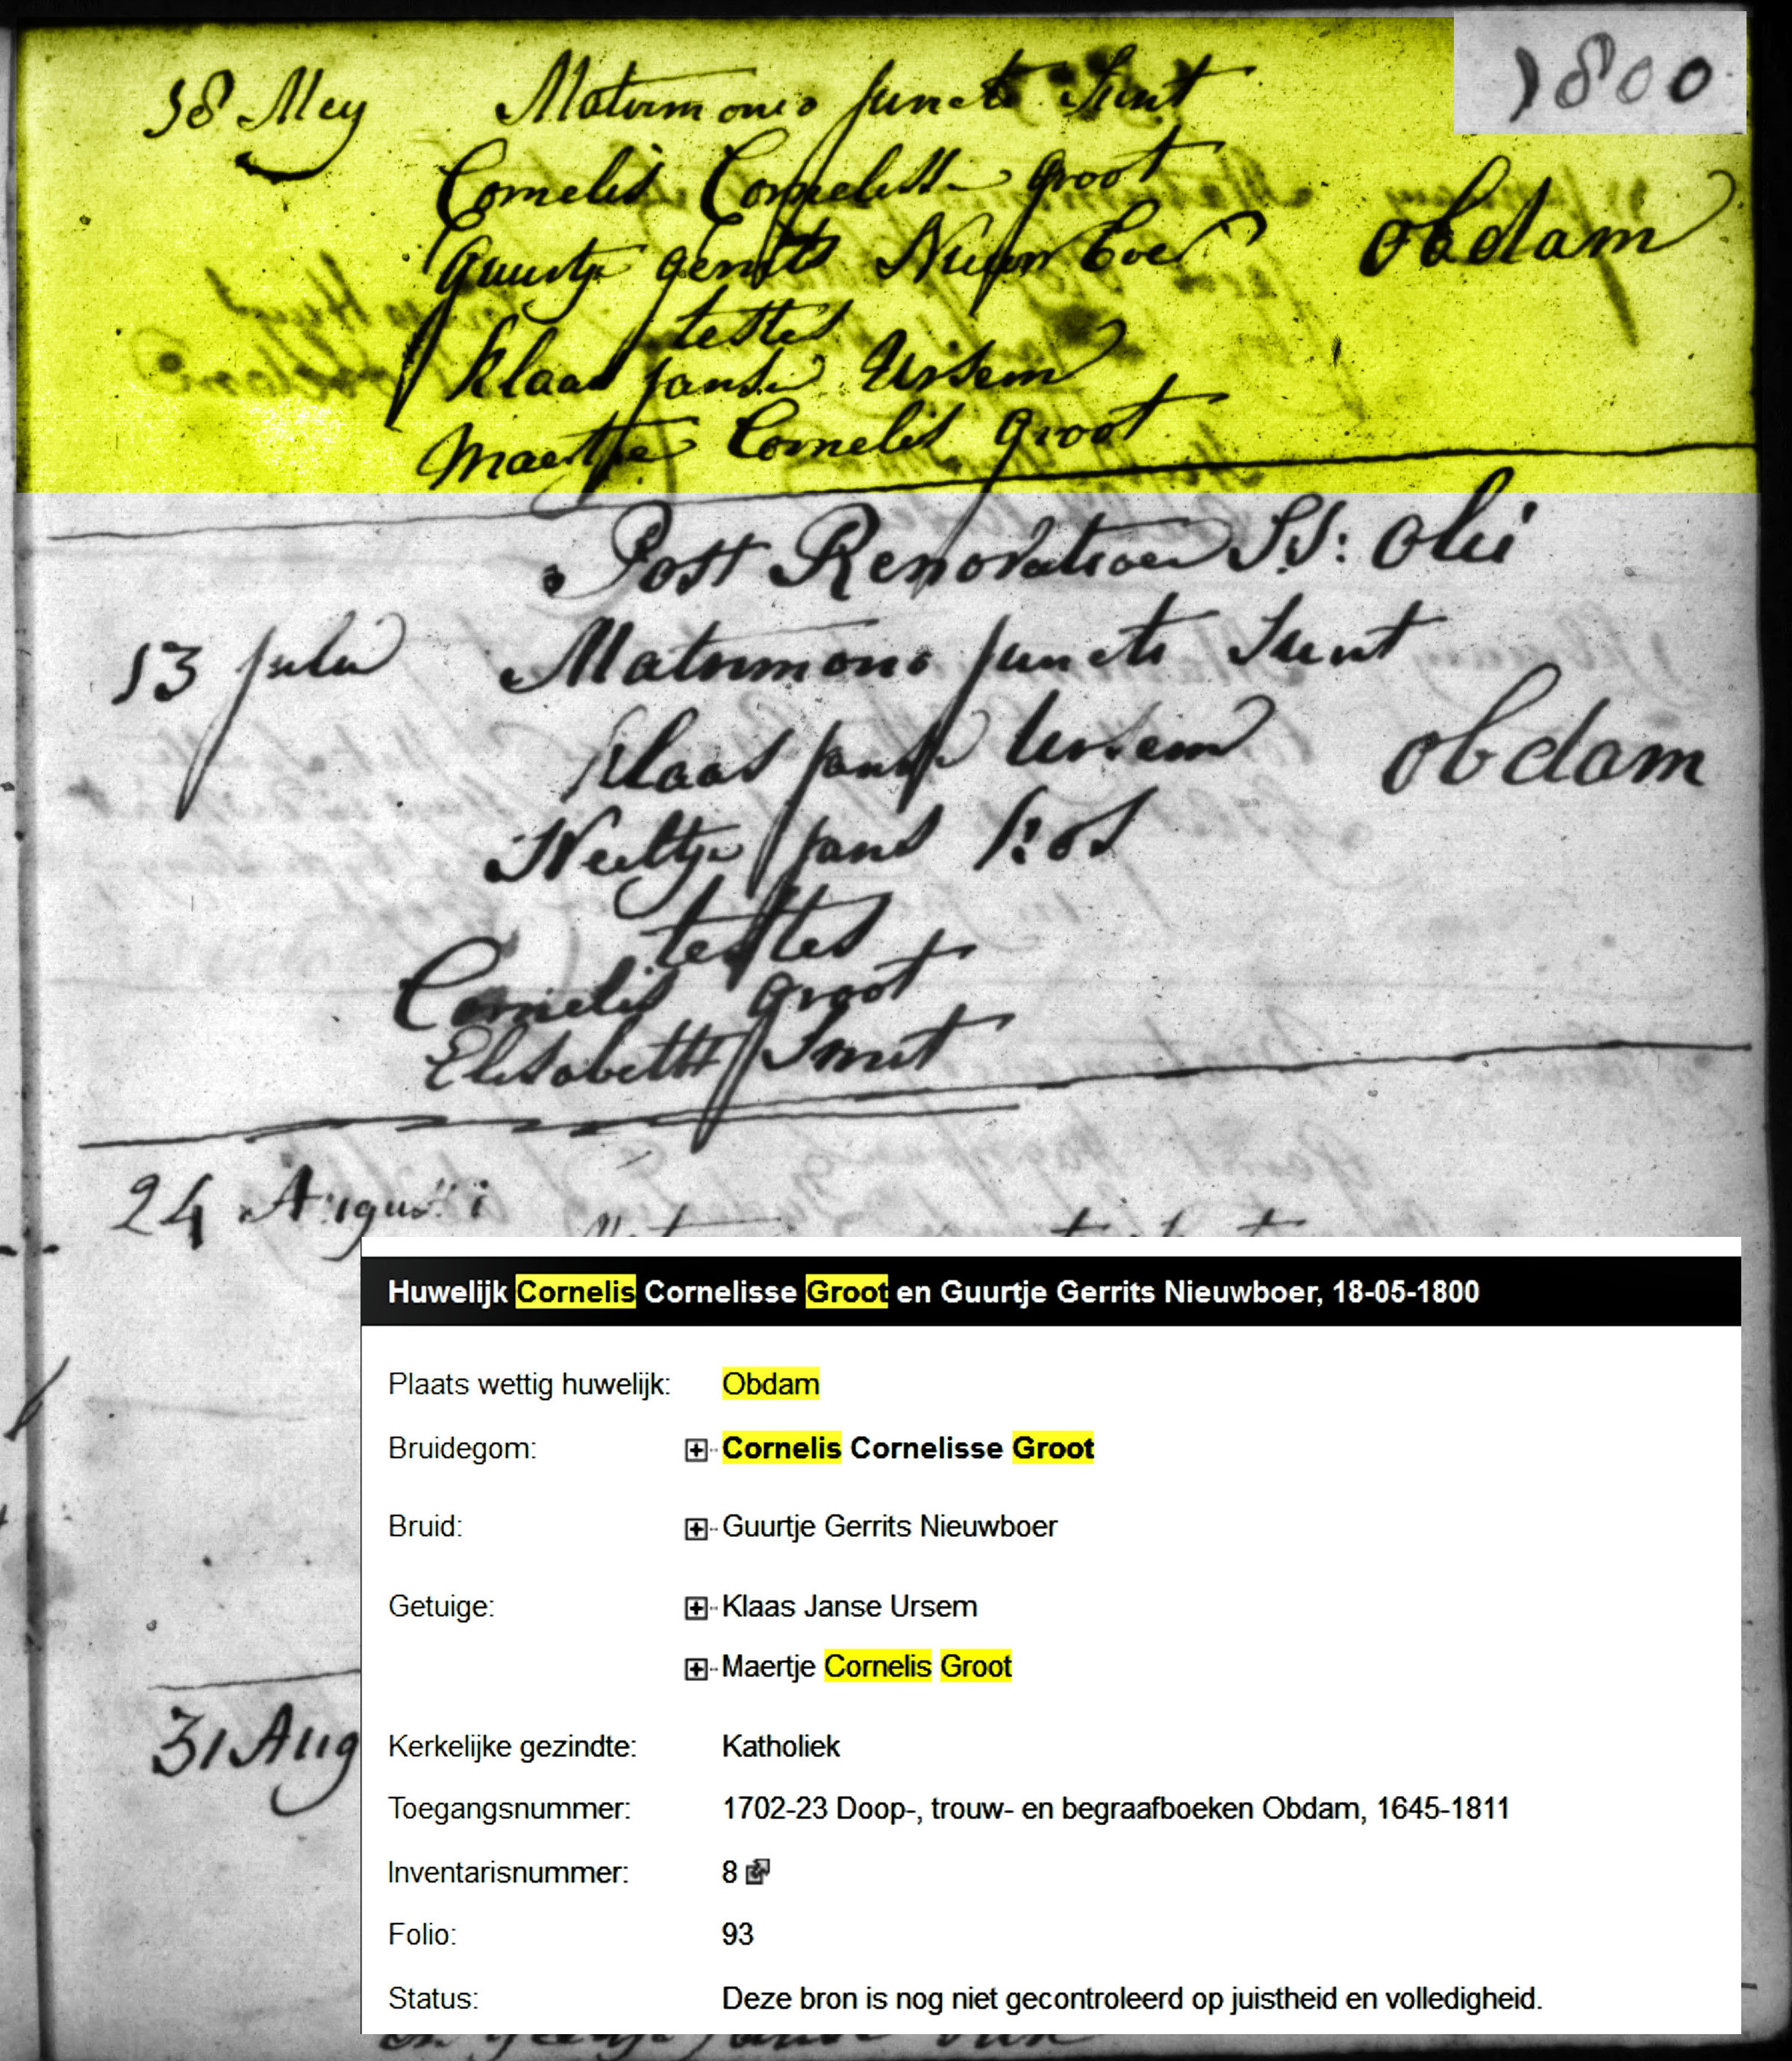 1800
18 Mey Matrimonio Juncti Sunt
Cornelis Cornelisse Groot
Guurtje Gerrits Nieuwboer obdam
testes
Klaas Janse Ursem
Maertje Cornelis Groot
Post Renovatioen SS: Olei
13 Julii Matrimonio Juncti Sunt
Klaas Janse Ursem obdam
Neeltje Jans
testes
Cornelis Groot
Elisabeth Smit
24 Augusti
31 Aug
Huwelijk Cornelis Cornelisse Groot en Guurtje Gerrits Nieuwboer, 18-05-1800
Plaats wettig huwelijk: Obdam
Bruidegom: Cornelis Cornelisse Groot
Bruid: Guurtje Gerrits Nieuwboer
Getuige: Klaas Janse Ursem
Maertje Cornelis Groot
Kerkelijke gezindte: Katholiek
Toegangsnummer: 1702-23 Doop-, trouw- en begraafboeken Obdam, 1645-1811
Inventarisnummer: 8
Folio: 93
Status: Deze bron is nog niet gecontroleerd op juistheid en volledigheid.